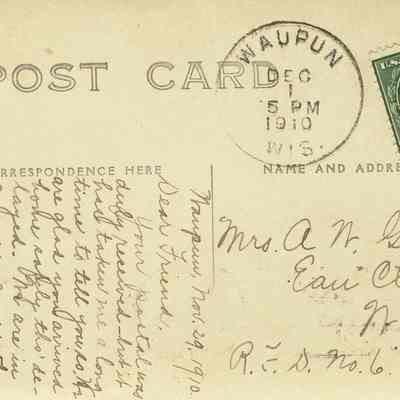 POST CARD
WAUPUN
DEC
1
5 PM
1910
WIS.
U.S.
RRESPONDENCE HERE
NAME AND ADDRE
Waupun, Nov. 29, 1910.
Dear Friend.
Your postal was
duly received but it
has taken me a long
time to tell you so, We
are glad you arrived
home safely tho' de-
layed. We are in
Mrs. A. W. G
Eau Cl
W
R.F.D. No. 6